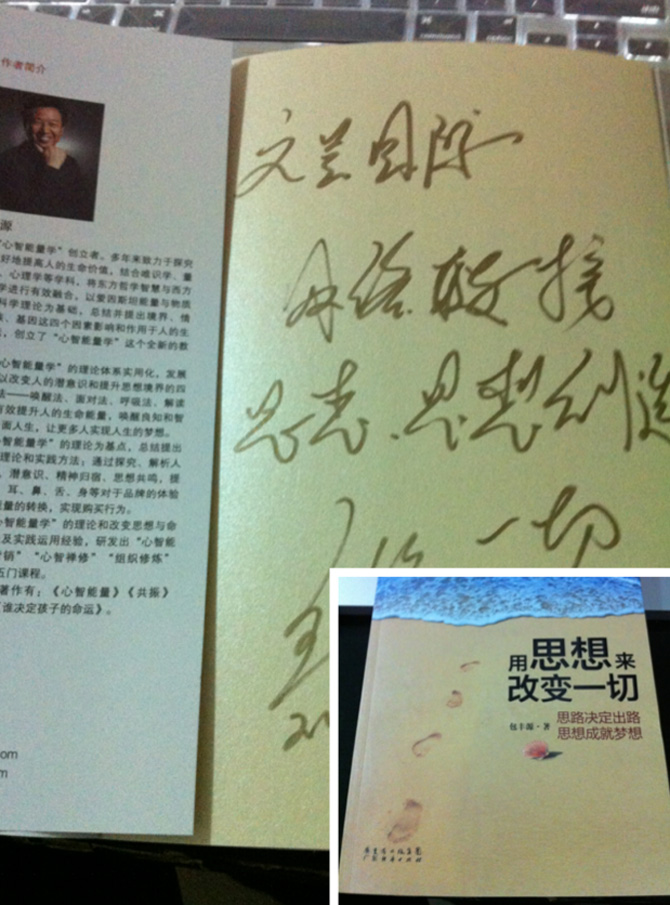 作者简介
源
“心智能量学”创立者。多年来致力于探究
好地提高人的生命价值,结合唯识学、量
、心理学等学科,将东方哲学智慧与西方
学进行有效融合,以爱因斯坦能量与物质
科学理论为基础,总结并提出境界、情
、基因这四个因素影响和作用于人的生
,创立了“心智能量学”这个全新的教
智能量学”的理论体系实用化,发展
以改变人的潜意识和提升思想境界的四
法——唤醒法、面对法、呼吸法、解读
有效提升人的生命能量,唤醒良知和智
面人生,让更多人实现人生的梦想。
智能量学”的理论为基点,总结提出
理论和实践方法;通过探究、解析人
、潜意识、精神归宿、思想共鸣,提
、耳、鼻、舌、身等对于品牌的体验
量的转换,实现购买行为。
心智能量学”的理论和改变思想与命
及实践运用经验,研发出“心智能
营销”“心智禅修”“组织修炼”
五门课程。
著作有:《心智能量》《共振》
《谁决定孩子的命运》。
om
m
文兰国际
思想创造
一切
用思想来
改变一切
思路决定出路
包丰源·著
思想成就梦想
广东省出版集团
广东经济出版社